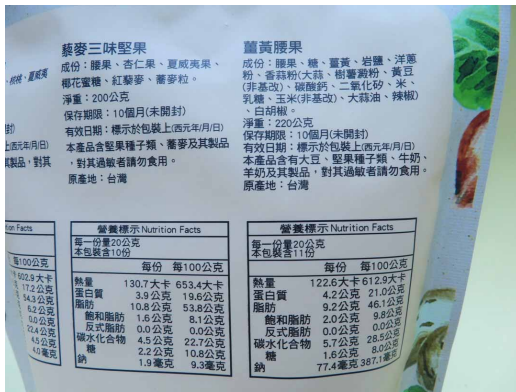 、核桃、夏威夷
封)
上(西元年/月/日)
其製品，對其
藜麥三味堅果
成份：腰果、杏仁果、夏威夷果、
椰花蜜糖、紅藜麥、蕎麥粒。
淨重：200公克
保存期限：10個月(未開封)
有效日期：標示於包裝上(西元年/月/日)
本產品含堅果種子類、蕎麥及其製品
，對其過敏者請勿食用。
原產地：台灣
薑黃腰果
成份：腰果、糖、薑黃、岩鹽、洋蔥
粉、香蒜粉(大蒜、樹薯澱粉、黃豆
(非基改)、碳酸鈣、二氧化矽、米、
乳糖、玉米(非基改)、大蒜油、辣椒)
、白胡椒。
淨重：220公克
保存期限：10個月(未開封)
有效日期：標示於包裝上(西元年/月/日)
本產品含有大豆、堅果種子類、牛奶、
羊奶及其製品，對其過敏者請勿食用。
原產地：台灣
tion Facts
每100公克
602.9大卡
17.2公克
54.3公克
6.2公克
0.0公克
22.4公克
4.5公克
4.0毫克
營養標示 Nutrition Facts
每一份量20公克
本包裝含10份
每份 每100公克
熱量 130.7大卡 653.4大卡
蛋白質 3.9公克 19.6公克
脂肪 10.8公克 53.8公克
飽和脂肪 1.6公克 8.1公克
反式脂肪 0.0公克 0.0公克
碳水化合物 4.5公克 22.7公克
糖 2.2公克 10.8公克
鈉 1.9毫克 9.3毫克
營養標示 Nutrition Facts
每一份量20公克
本包裝含11份
每份 每100公克
熱量 122.6大卡 612.9大卡
蛋白質 4.2公克 21.0公克
脂肪 9.2公克 46.1公克
飽和脂肪 2.0公克 9.8公克
反式脂肪 0.0公克 0.0公克
碳水化合物 5.7公克 28.5公克
糖 1.6公克 8.0公克
鈉 77.4毫克 387.1毫克